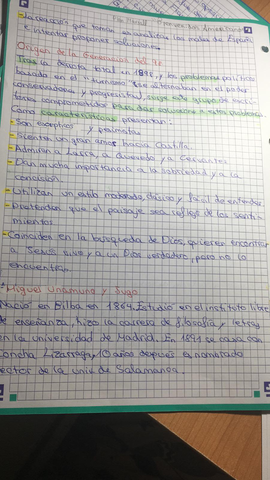 - La reacción que toman es analizar los males de España
e intentar proponer soluciones
Origen de la Generación del 98
Tras la derrota total en 1898, y los problemas políticos
basada en el turnismo que alternaban en el poder
conservadores y progresistas, surge este grupo de escri-
tores comprometidos para dar solución a estos problemas
Como características presentan:
- Son excépticos y pesimistas
- Sienten un gran amor hacia Castilla.
- Admiran a Larra, a Quevedo y a Cervantes
- Dan mucha importancia a la sobriedad y a la
concisión.
- Utilizan un estilo moderado, clásico y fácil de entender
- Pretenden que el paisaje sea reflejo de los senti-
mientos
- Coinciden en la busqueda de Dios, quieren encontrar
a Jesús vivo y a un Dios verdadero, pero no lo
encuentran.
* Miguel Unamuno y Jugo
Nació en Bilbao en 1864. Estudió en el instituto libre
de enseñanza, hizo la carrera de filosofía y letras
en la universidad de Madrid. En 1891 se casa con
Concha Lizarraga, 10 años después es nombrado
rector de la univ de Salamanca.